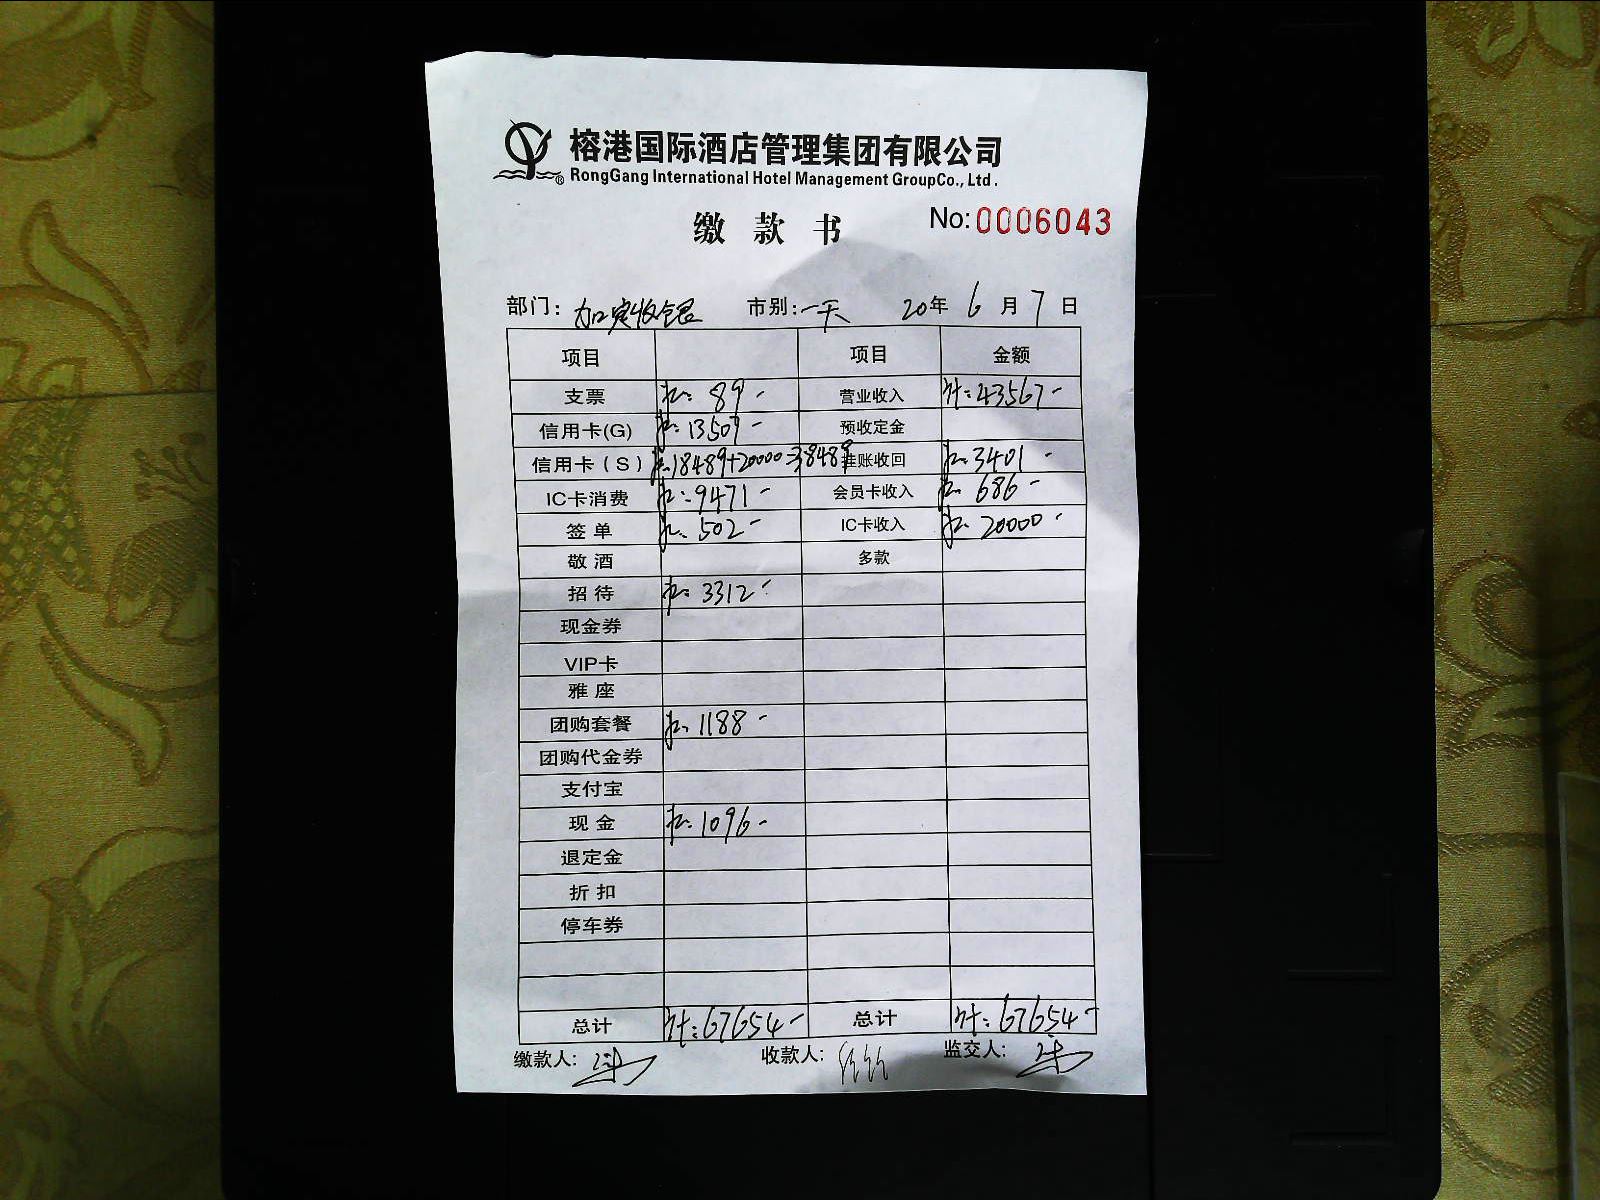 榕港国际酒店管理集团有限公司
RongGang International Hotel Management GroupCo., Ltd.
缴 款 书 No: 0006043
部门: 加定收银 市别: 一天 20年 6 月 7 日
项目 项目 金额
支票 89 - 营业收入 计: 43567 -
信用卡(G) 13509 - 预收定金
信用卡(S) 18489+20000=38489 挂账收回 3401 -
IC卡消费 9471 - 会员卡收入 686 -
签单 502 - IC卡收入 20000 -
敬酒 多款
招待 3312 -
现金券
VIP卡
雅座
团购套餐 1188 -
团购代金券
支付宝
现金 1096 -
退定金
折扣
停车券
总计 计: 67654 - 总计 计: 67654 -
缴款人: 收款人: 监交人: